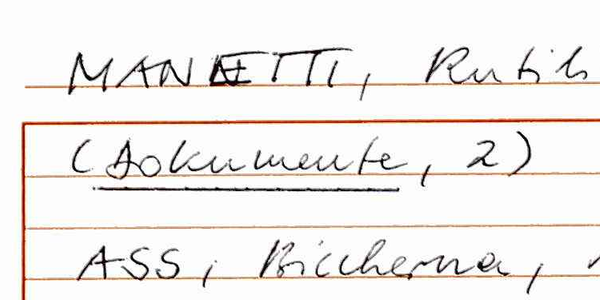 MANETTI, Rutili
(Dokumente, 2)
ASS, Biccherna,